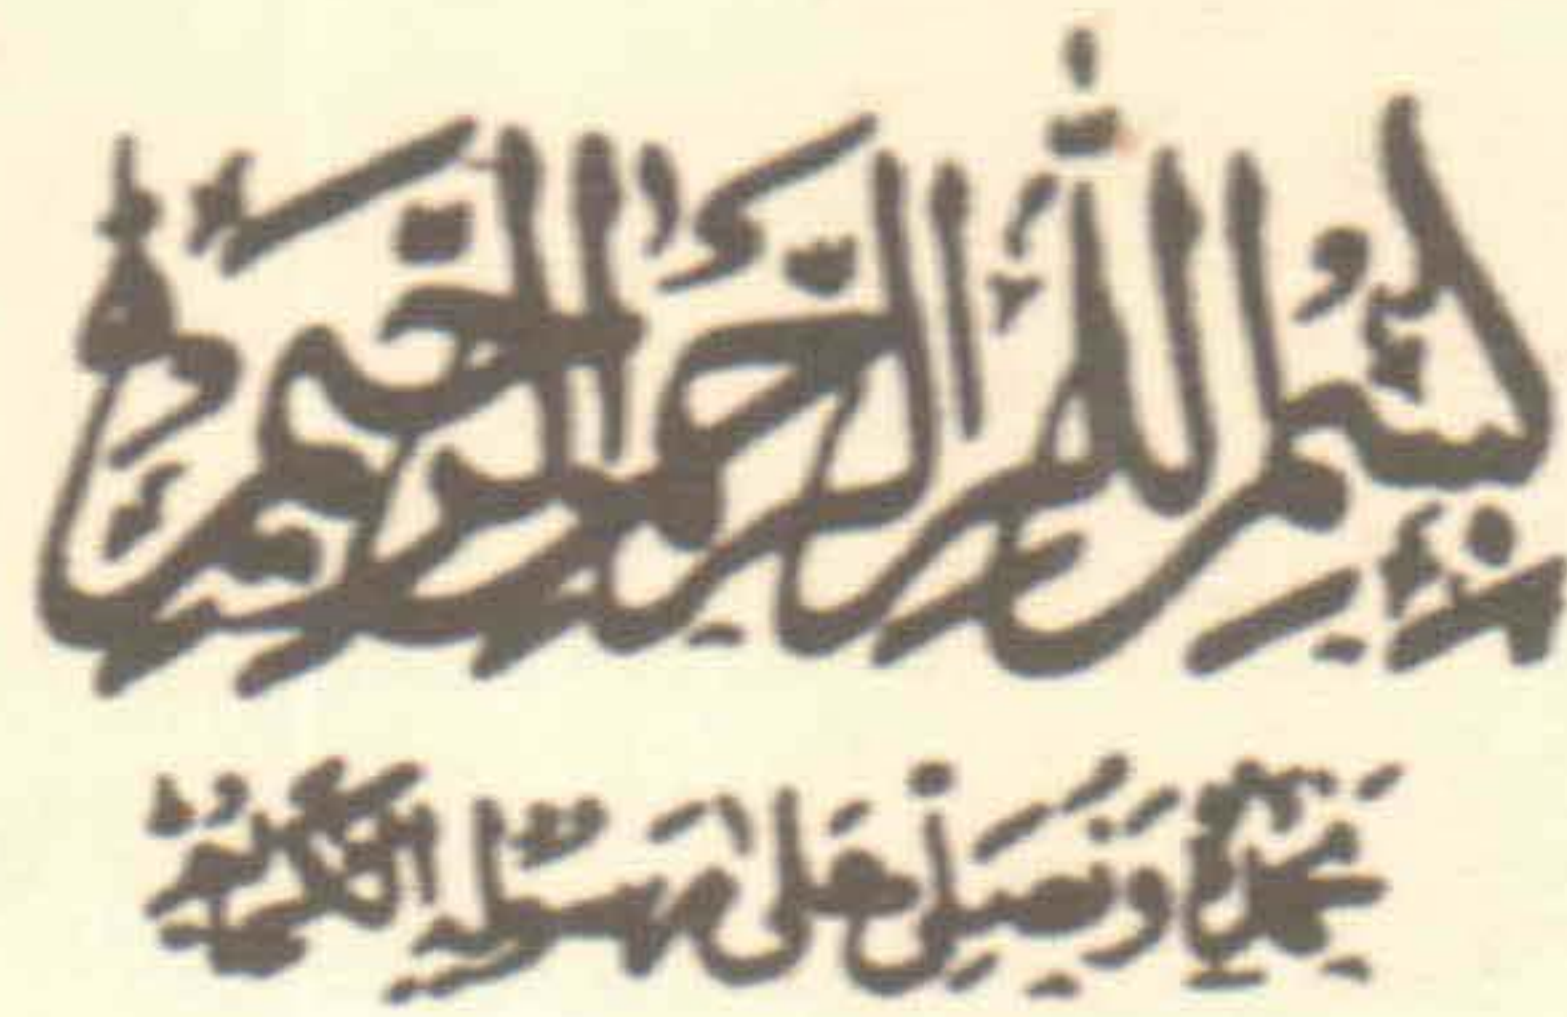 بِسْمِ اللّٰهِ الرَّحْمٰنِ الرَّحِيْمِ
نحمده ونصلي على رسوله الكريم